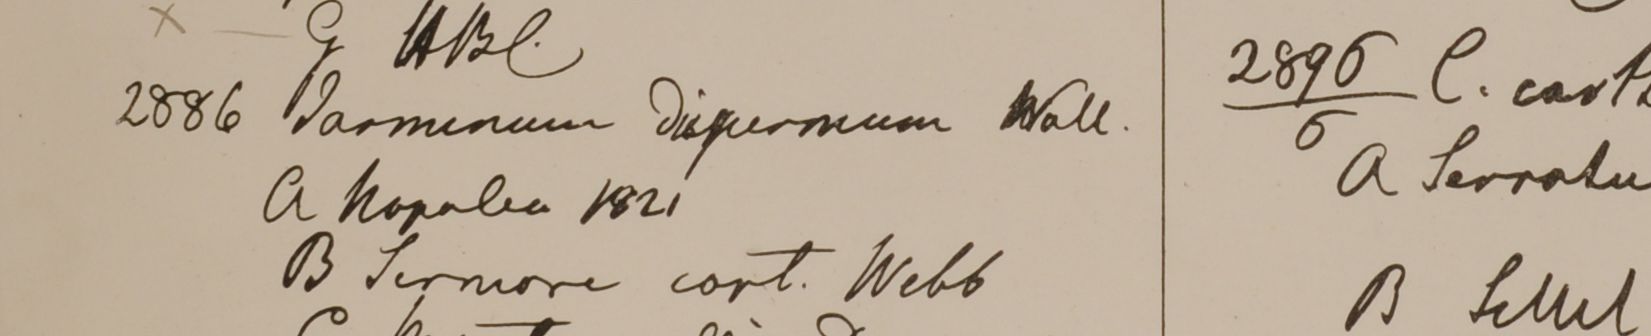 G HBC.
2886 Jasminum dispermum Wall.
A Napalia 1821
B Sirmore cort. Webb
2896 C.
6
A Serratu
B